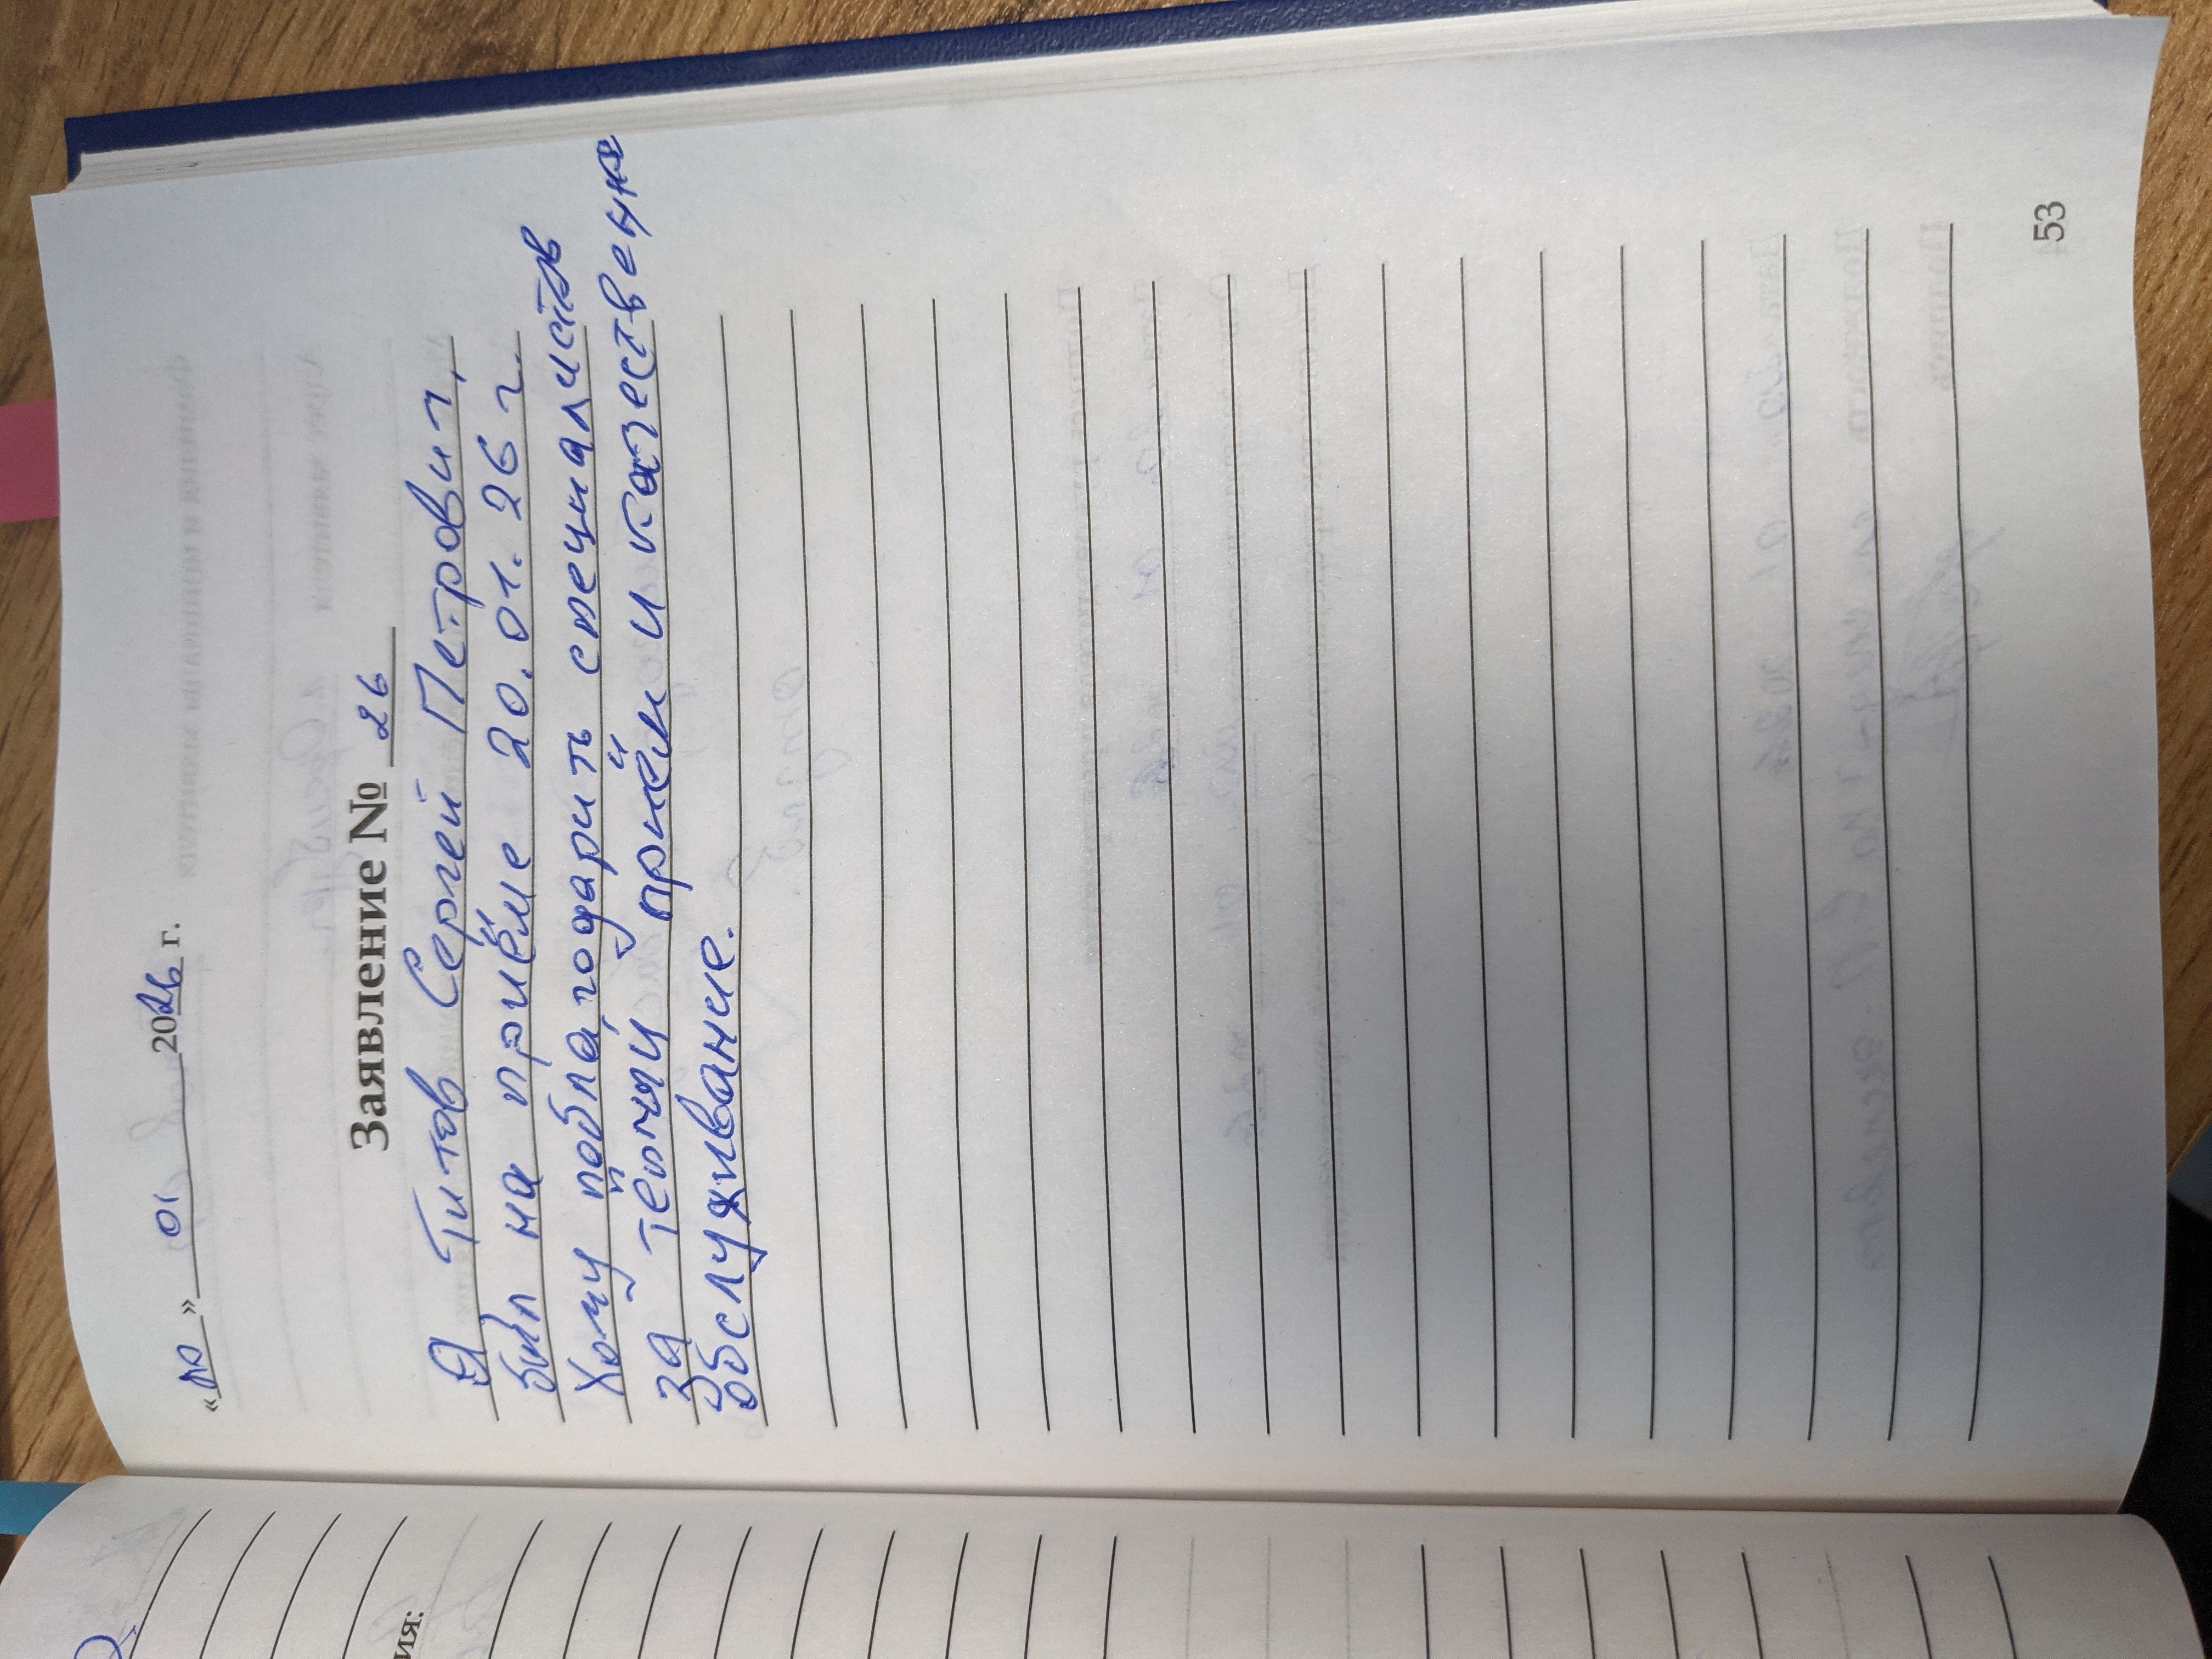 «20» 01 2026 г.
Заявление № 26
Я Титов Сергей Петрович,
был на приёме 20.01.26 г.
Хочу поблагодарить специалистов
за тёплый приём и качественное
обслуживание.
53
ия: